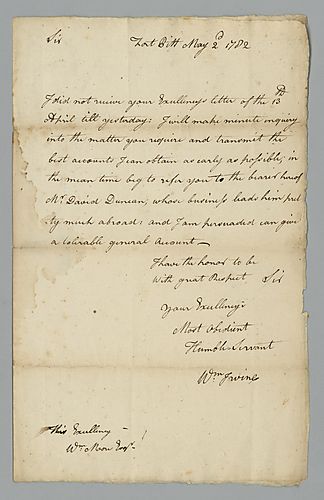 Sir
Fort Pitt May 2d 1782
I did not receive your Excellency's letter of the 13th
April till yesterday: I will make minute enquiry
into the matter you require and transmit the
best accounts I can obtain as early as possible, in
the mean time beg to refer you to the bearer hereof
Mr David Duncan, whose business leads him pret
ty much abroad: and I am persuaded can give
a tolerable general account—
I have the honor to be
With great Respect, Sir
Your Excellency's
Most Obedient
Humble Servant
Wm Irvine
His Excellency
Wm Moore Esqr.